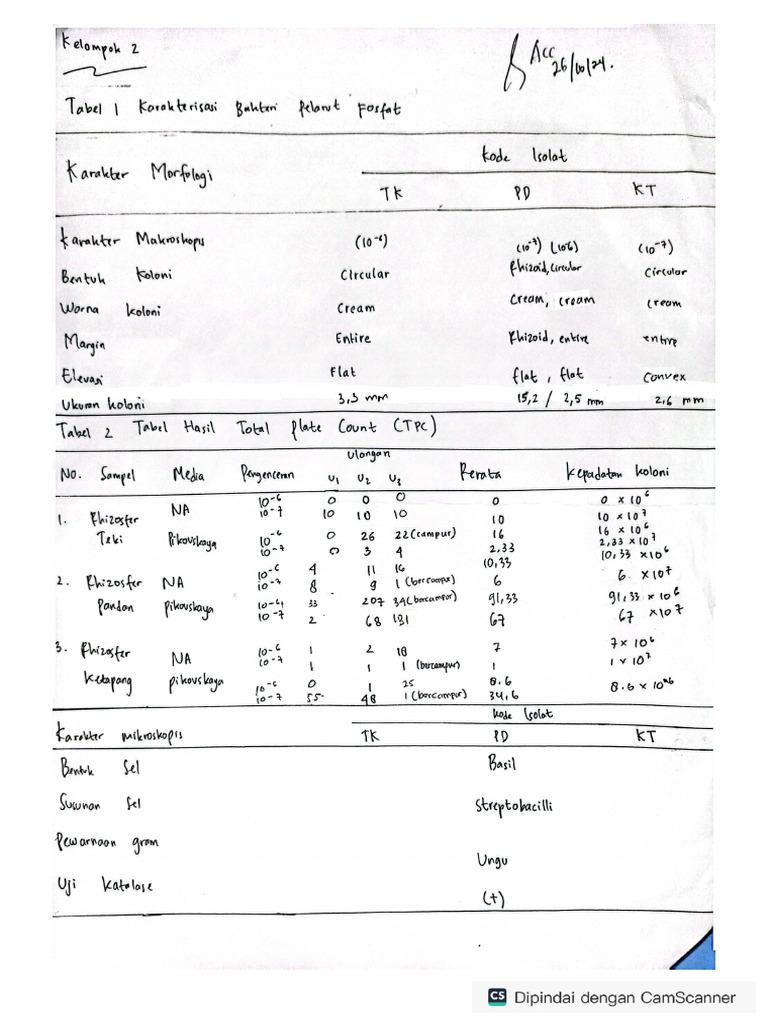 Kelompok 2
Acc
26/10/24.
Tabel 1 Karakterisasi Bakteri Pelarut Fosfat
Karakter Morfologi Kode Isolat
TK PD KT
Karakter Makroskopis (10⁻⁶) (10⁻⁷) (10⁻⁶) (10⁻⁷)
Bentuk Koloni Circular Rhizoid, Circular Circular
Warna koloni Cream Cream, cream cream
Margin Entire Rhizoid, entire entire
Elevasi Flat flat, flat Convex
Ukuran koloni 3,3 mm 15,2 / 2,5 mm 2,6 mm
Tabel 2 Tabel Hasil Total Plate Count (TPC)
Ulangan
No. Sampel Media Pengenceran U1 U2 U3 Rerata Kepadatan koloni
1. Rhizosfer NA 10⁻⁶ 0 0 0 0 0 x 10⁶
10⁻⁷ 10 10 10 10 10 x 10⁷
Teki Pikovskaya 10⁻⁶ 0 26 22 (campur) 16 16 x 10⁶
10⁻⁷ 0 3 4 2,33 2,33 x 10⁷
2. Rhizosfer NA 10⁻⁶ 4 11 16 10,33 10,33 x 10⁶
10⁻⁷ 8 9 1 (bercampur) 6 6. x 10⁷
Pandan Pikovskaya 10⁻⁶ 33 207 34 (bercampur) 91,33 91,33 x 10⁶
10⁻⁷ 2 68 131 67 67 x 10⁷
3. Rhizosfer NA 10⁻⁶ 1 2 18 7 7 x 10⁶
10⁻⁷ 1 1 1 (bercampur) 1 1 x 10⁷
Ketapang pikovskaya 10⁻⁶ 0 1 25 8.6 8.6 x 10
10⁻⁷ 55 48 1 (bercampur) 34,6
Kode Isolat
Karakter mikroskopis TK PD KT
Bentuk Sel Basil
Susunan Sel Streptobacilli
Pewarnaan gram Ungu
Uji Katalase (+)
CS Dipindai dengan CamScanner